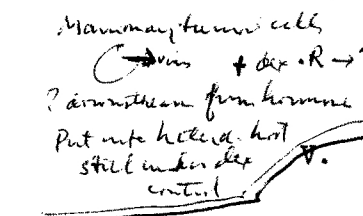 Mammary tumor cells
virus + dex • R → ?
? downstream from hormone
Put into heterol. host
still under dex
control V.